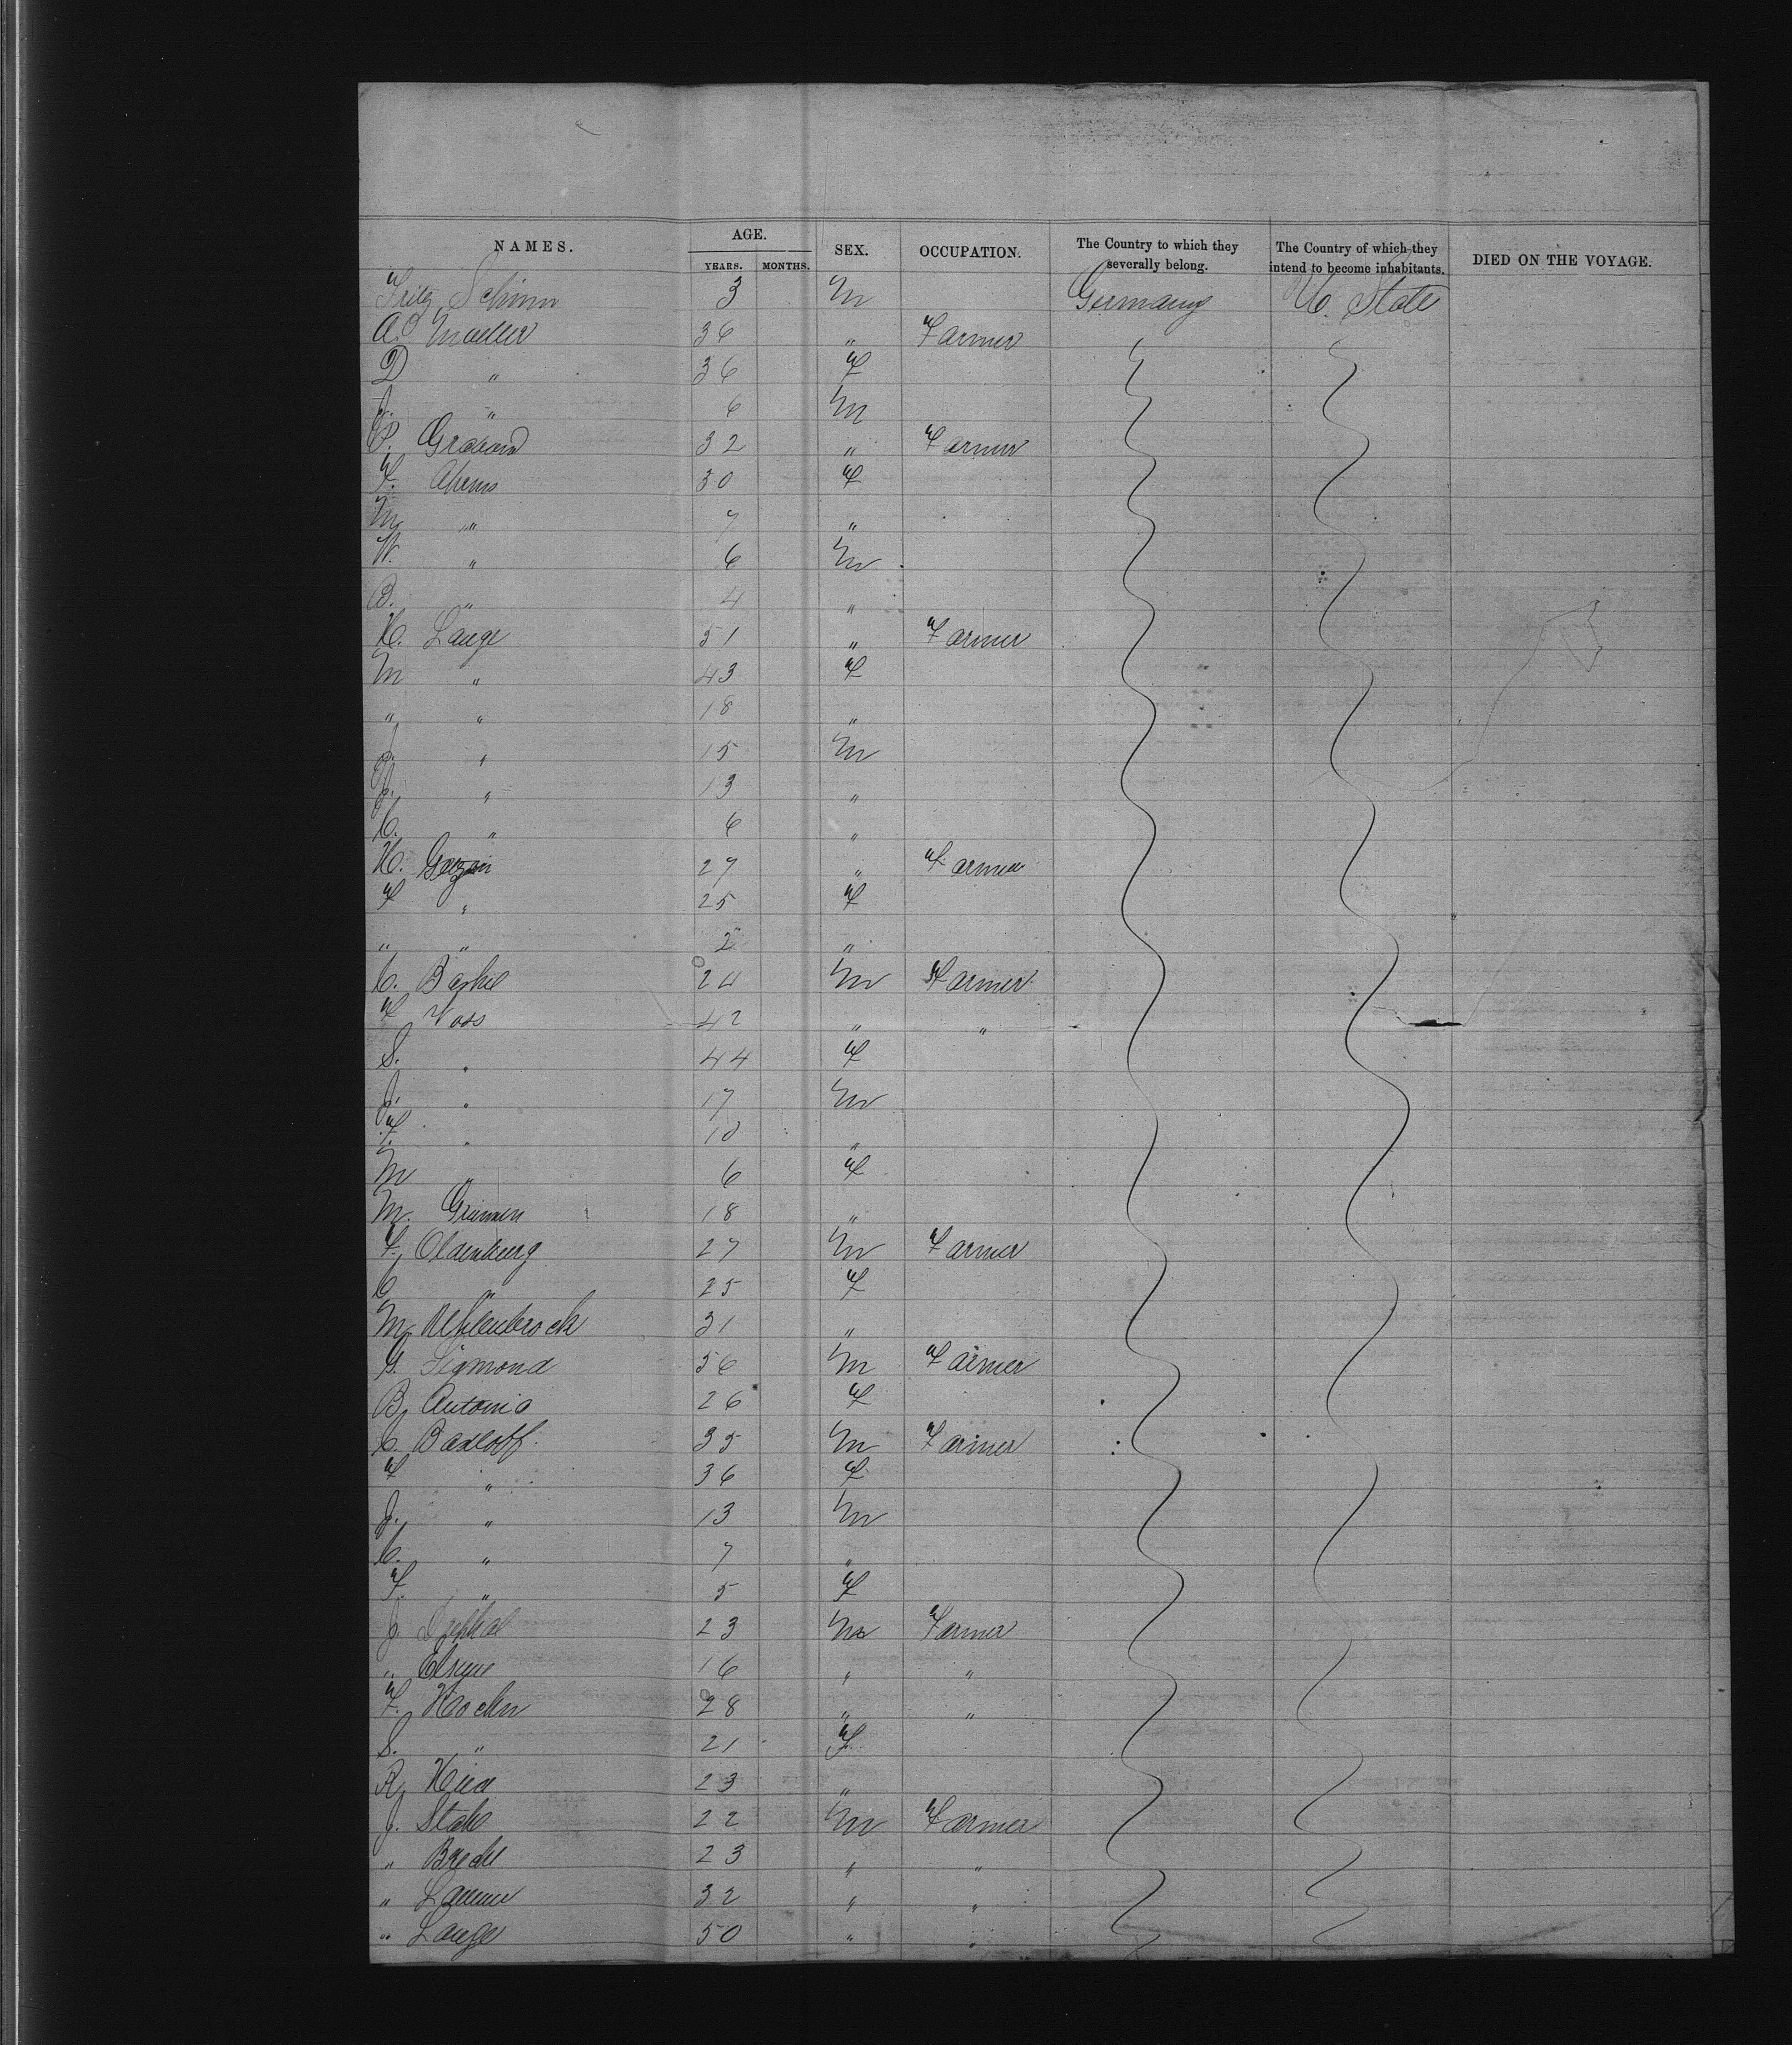 NAMES. AGE. YEARS. MONTHS. SEX. OCCUPATION. The Country to which they severally belong. The Country of which they intend to become inhabitants. DIED ON THE VOYAGE.
Fritz Schinn 3 M Germany U. State
A. Mueller 36 " Farmer
D " 36 F
J. " 6 M
P. 32 " Farmer
F. Ahrens 30 F
M " 7 "
W. " 6 M
B. " 4 "
H. Lange 51 " Farmer
M " 43 F
" " 18 "
J. " 15 M
" 13 "
C. " 6 "
H. 27 " Farmer
F " 25 F
" " 2 "
C. 24 M Farmer
F Voss 42 " "
S. " 44 F
J. " 17 M
F. " 10 "
M " 6 F
M. Grimmen 18 "
F. Oldenburg 27 M Farmer
C " 25 F
M. Uhlenbrock 31 "
G. Sigmond 56 M Farmer
B. Antonio 26 F
C. Badloff 35 M Farmer
F " 36 F
J. " 13 M
C. " 7 "
F. " 5 F
J. 23 M Farmer
" 16 " "
F. 28 " "
S. " 21 F
R. 23 "
J. Stahl 22 M Farmer
" 23 " "
" 32 " "
" Lange 50 " "